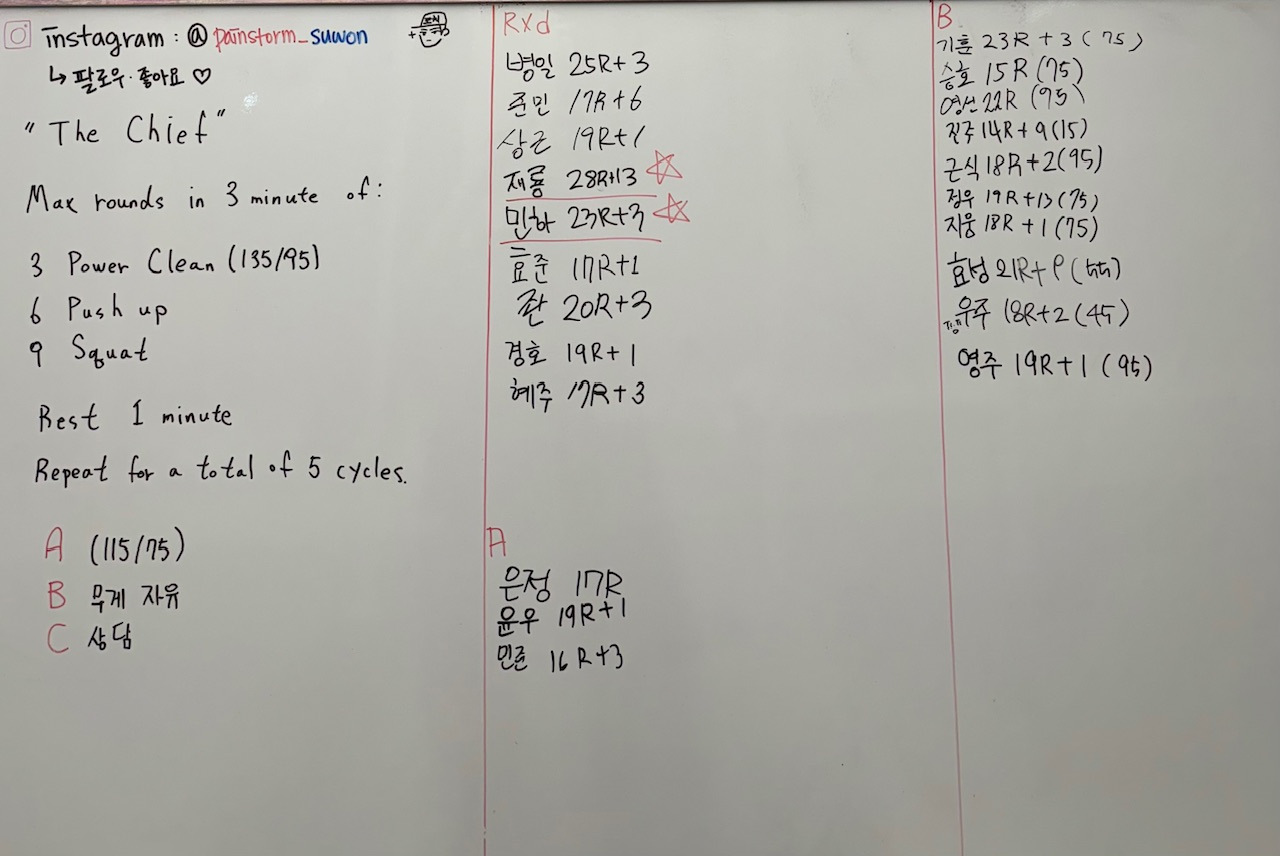 instagram : @painstorm_suwon
↳ 팔로우·좋아요 ♡
"The Chief"
Max rounds in 3 minute of:
3 Power Clean (135/95)
6 Push up
9 Squat
Rest 1 minute
Repeat for a total of 5 cycles.
A (115/75)
B 무게 자유
C 상담
Rxd
병일 25R+3
준민 17R+6
상근 19R+1
재룡 28R+13 ☆
민하 23R+3 ☆
효준 17R+1
좐 20R+3
경호 19R+1
혜주 17R+3
A
은정 17R
윤우 19R+1
민준 16R+3
B
기훈 23R+3 (75)
승호 15R (75)
영선 22R (95)
진주 14R+9 (15)
근식 18R+2 (95)
정우 19R+13 (75)
지웅 18R+1 (75)
효성 21R+9 (55)
우주 18R+2 (45)
영주 19R+1 (95)